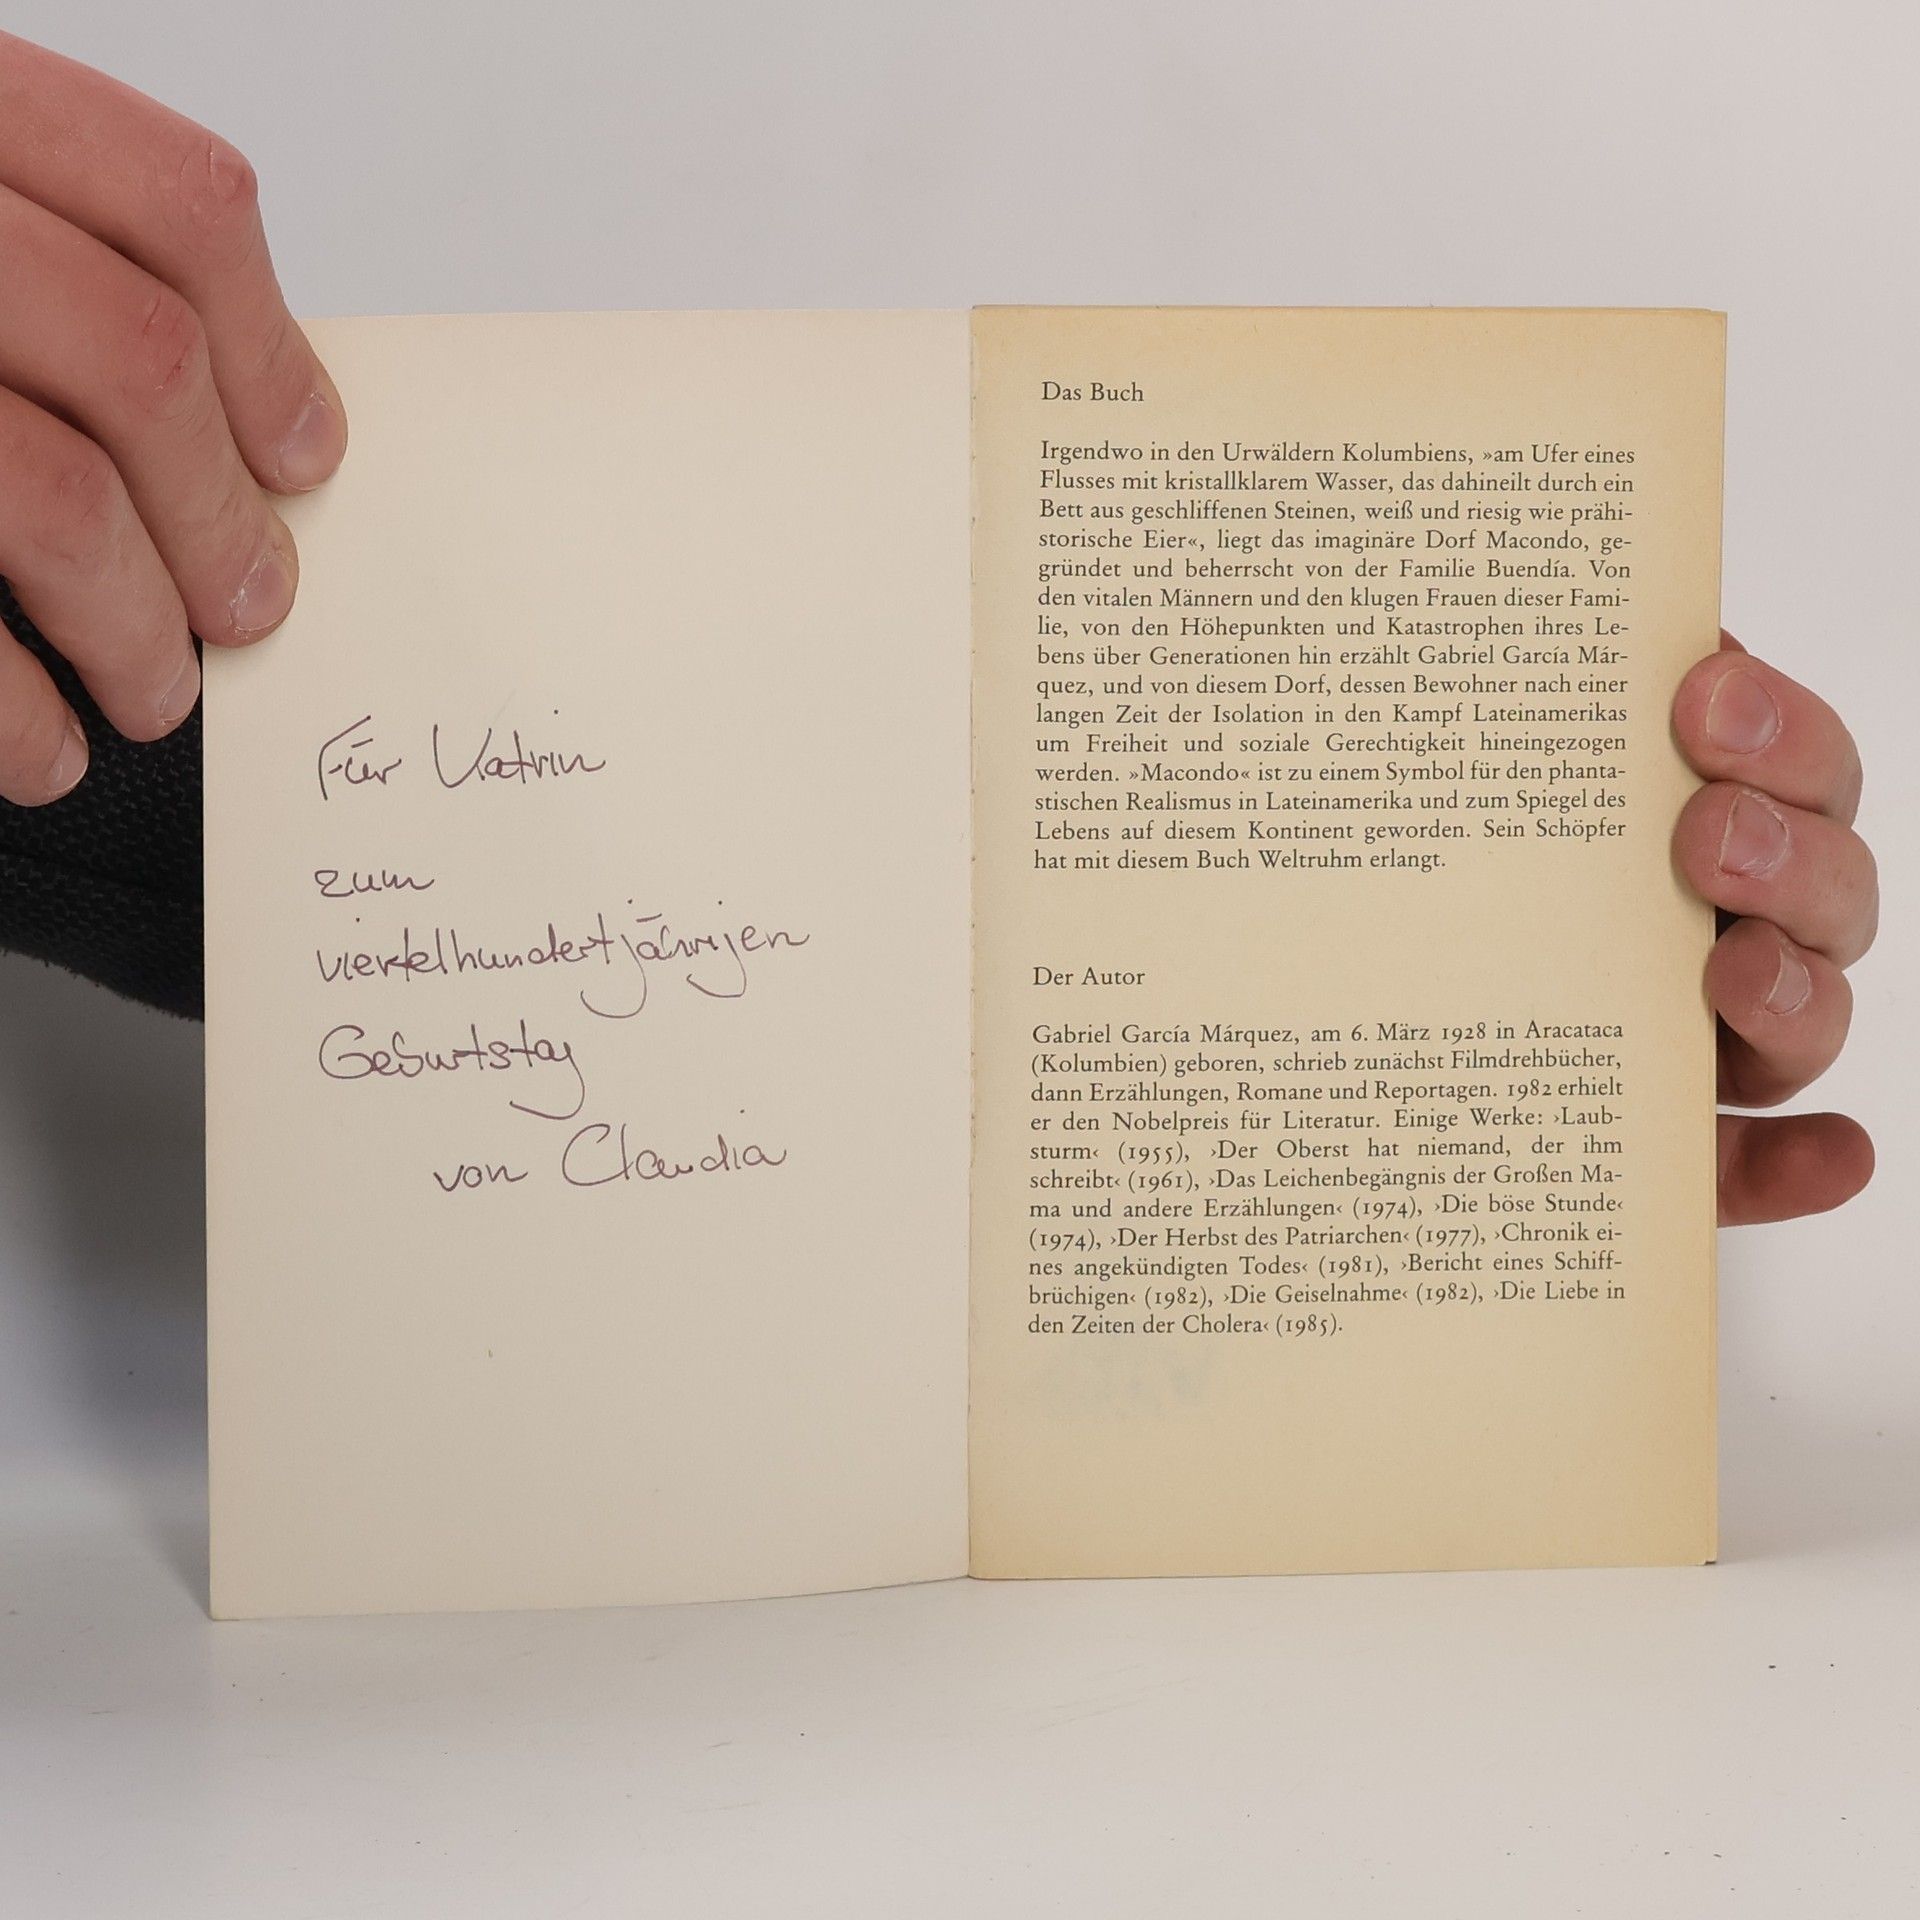 Für Katrin
zum
viertelhundertjährigen
Geburtstag
von Claudia
Das Buch
Irgendwo in den Urwäldern Kolumbiens, »am Ufer eines
Flusses mit kristallklarem Wasser, das dahineilt durch ein
Bett aus geschliffenen Steinen, weiß und riesig wie prähi-
storische Eier«, liegt das imaginäre Dorf Macondo, ge-
gründet und beherrscht von der Familie Buendía. Von
den vitalen Männern und den klugen Frauen dieser Fami-
lie, von den Höhepunkten und Katastrophen ihres Le-
bens über Generationen hin erzählt Gabriel García Már-
quez, und von diesem Dorf, dessen Bewohner nach einer
langen Zeit der Isolation in den Kampf Lateinamerikas
um Freiheit und soziale Gerechtigkeit hineingezogen
werden. »Macondo« ist zu einem Symbol für den phanta-
stischen Realismus in Lateinamerika und zum Spiegel des
Lebens auf diesem Kontinent geworden. Sein Schöpfer
hat mit diesem Buch Weltruhm erlangt.
Der Autor
Gabriel García Márquez, am 6. März 1928 in Aracataca
(Kolumbien) geboren, schrieb zunächst Filmdrehbücher,
dann Erzählungen, Romane und Reportagen. 1982 erhielt
er den Nobelpreis für Literatur. Einige Werke: ›Laub-
sturm‹ (1955), ›Der Oberst hat niemand, der ihm
schreibt‹ (1961), ›Das Leichenbegängnis der Großen Ma-
ma und andere Erzählungen‹ (1974), ›Die böse Stunde‹
(1974), ›Der Herbst des Patriarchen‹ (1977), ›Chronik ei-
nes angekündigten Todes‹ (1981), ›Bericht eines Schiff-
brüchigen‹ (1982), ›Die Geiselnahme‹ (1982), ›Die Liebe in
den Zeiten der Cholera‹ (1985).